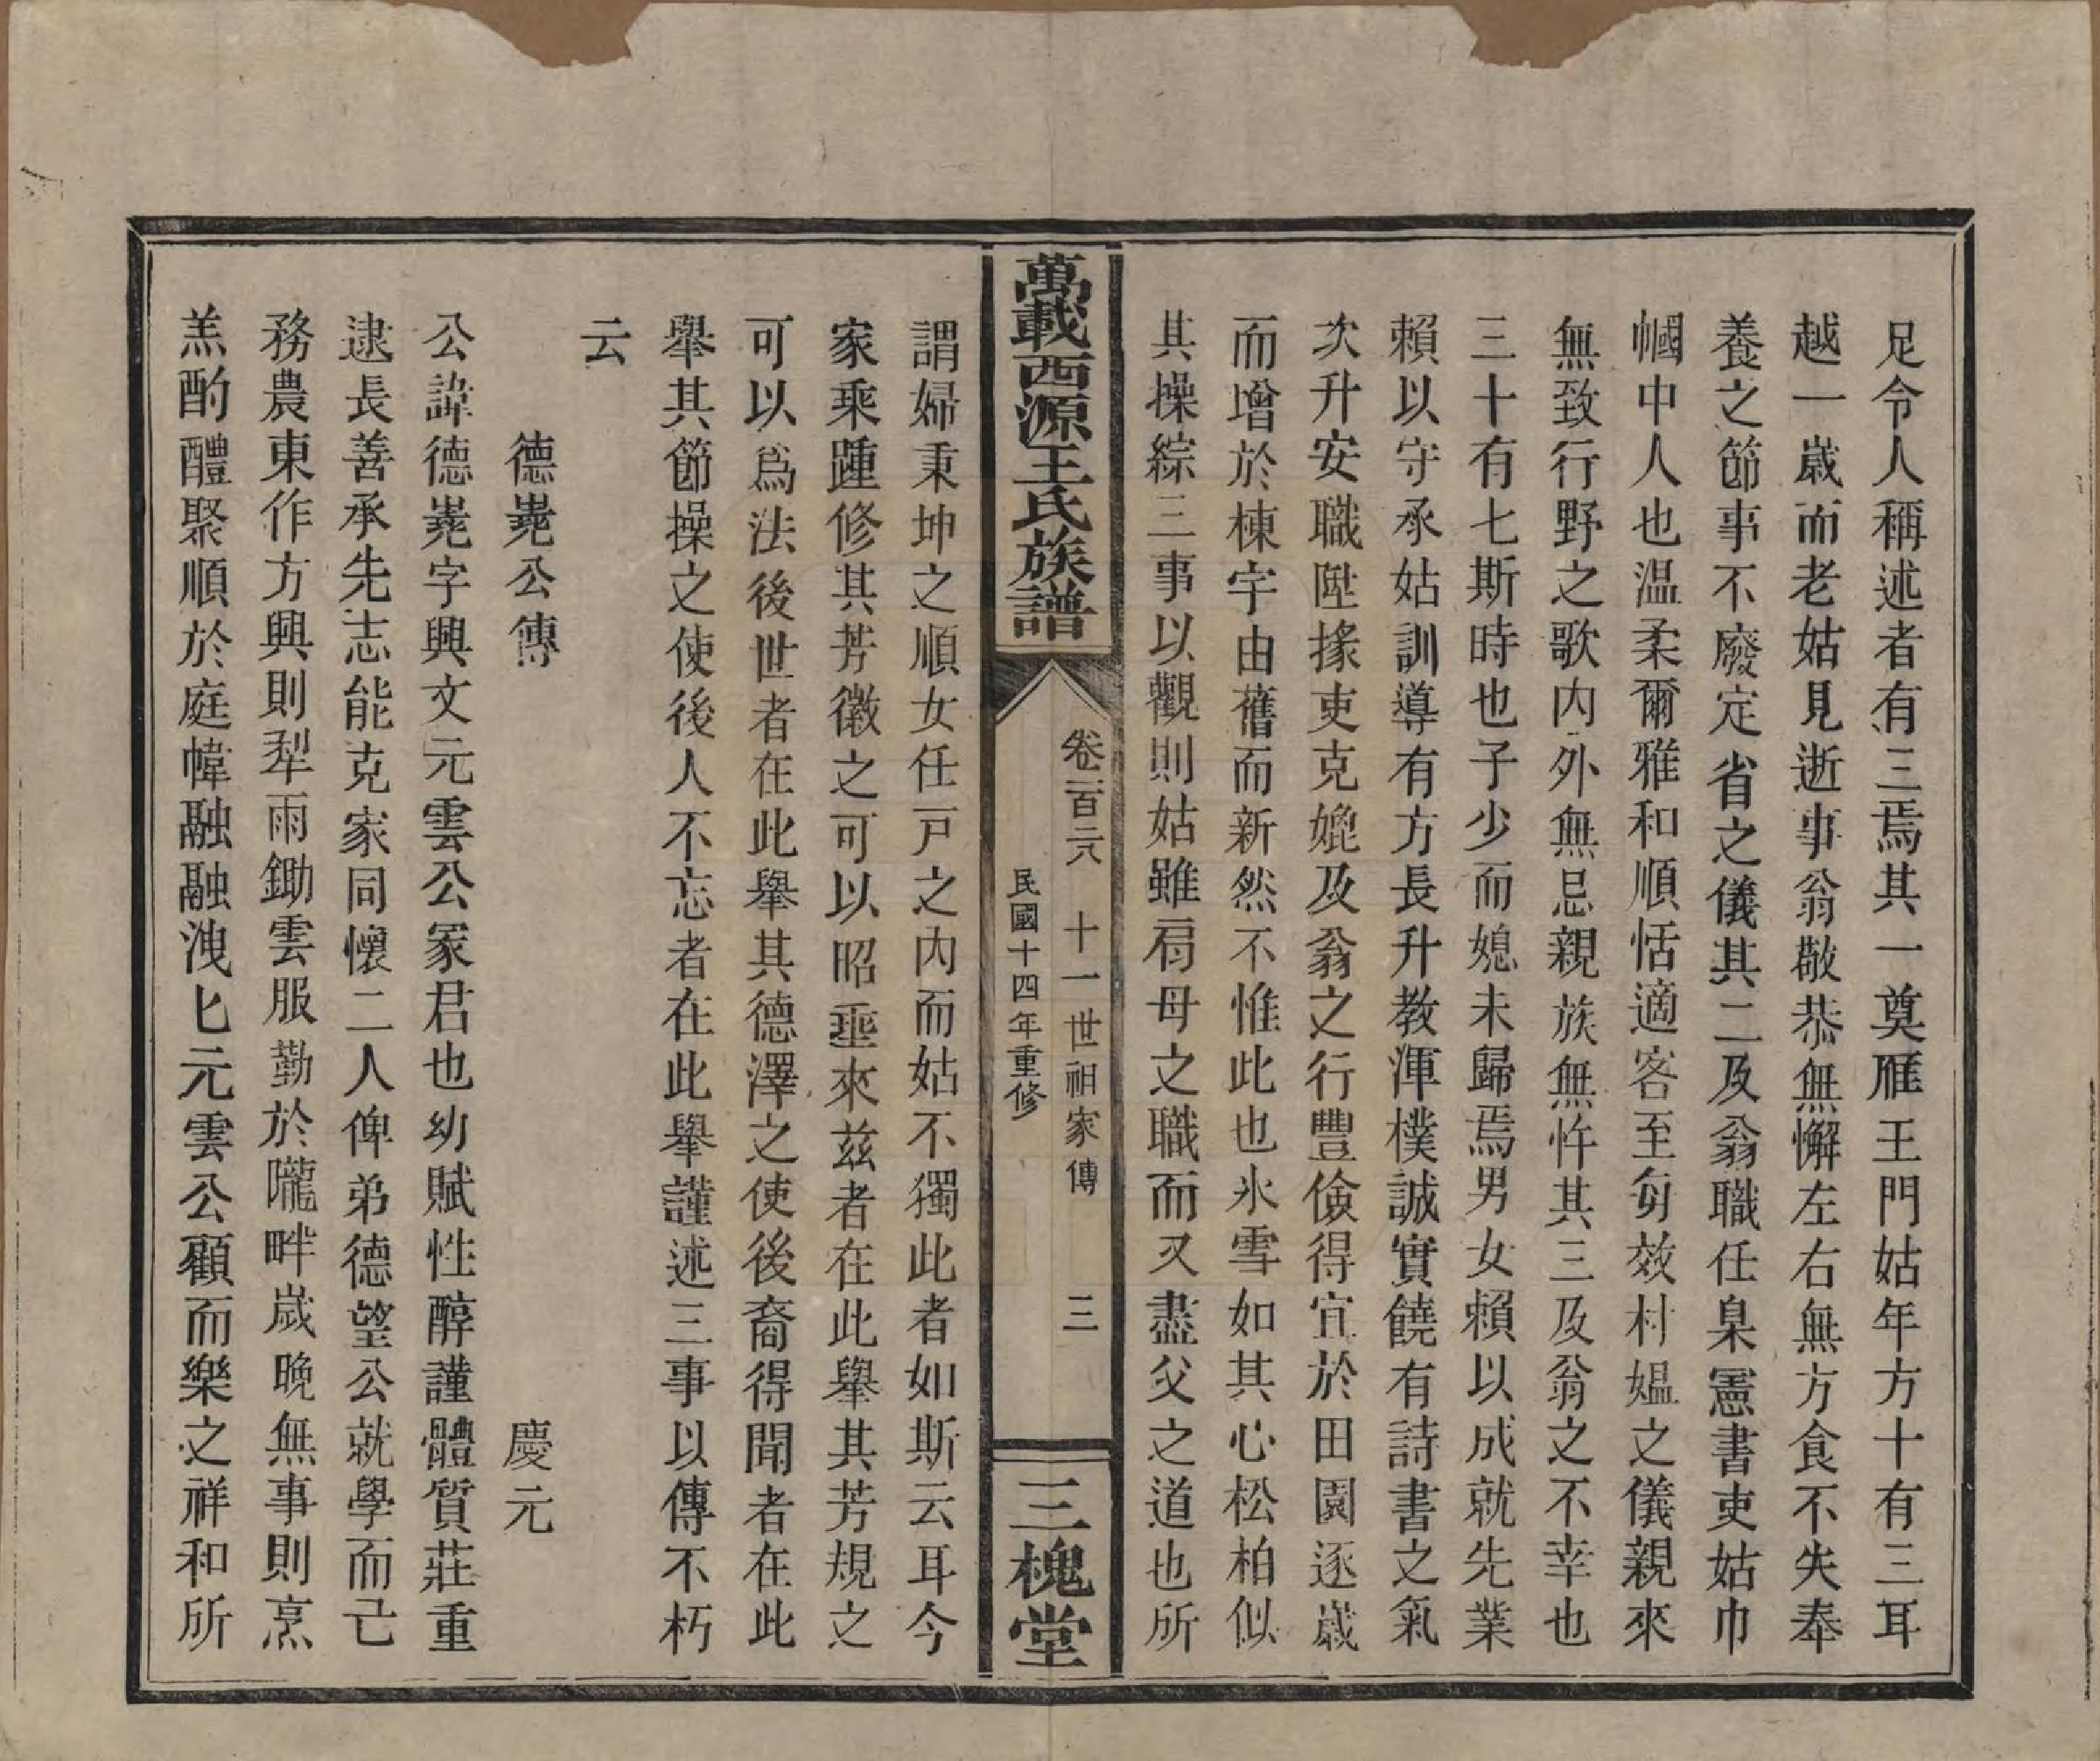 足令人稱述者有三焉其一奠雁王門姑年方十有三耳
越一歲而老姑見逝事翁敬恭無懈左右無方食不失奉
養之節事不廢定省之儀其二及翁職任臬憲書吏姑巾
幗中人也温柔爾雅和順恬適客至匆效村媪之儀親來
無致行野之歌内外無忌親族無忤其三及翁之不幸也
三十有七斯時也子少而媳未歸焉男女賴以成就先業
賴以守承姑訓導有方長升教渾樸誠實饒有詩書之氣
次升安職陞掾吏克媲及翁之行豐儉得宜於田園逐歲
而增於棟宇由舊而新然不惟此也氷雪如其心松柏似
其操綜三事以觀則姑雖爲母之職而又盡父之道也所
萬載西源王氏族譜
卷二百二六 十一世祖家傳 三
民國十四年重修
三槐堂
謂婦秉坤之順女任戸之内而姑不獨此者如斯云耳今
家乘踵修其芳徽之可以昭垂來兹者在此舉其芳規之
可以爲法後世者在此舉其德澤之使後裔得聞者在此
舉其節操之使後人不忘者在此舉謹述三事以傳不朽
云
德嵬公傳 慶元
公諱德嵬字興文元雲公冢君也幼賦性醇謹體質莊重
逮長善承先志能克家同懷二人俾弟德望公就學而己
務農東作方興則犁雨鋤雲服勤於隴畔歲晚無事則烹
羔酌醴聚順於庭幃融融洩匕元雲公顧而樂之祥和所